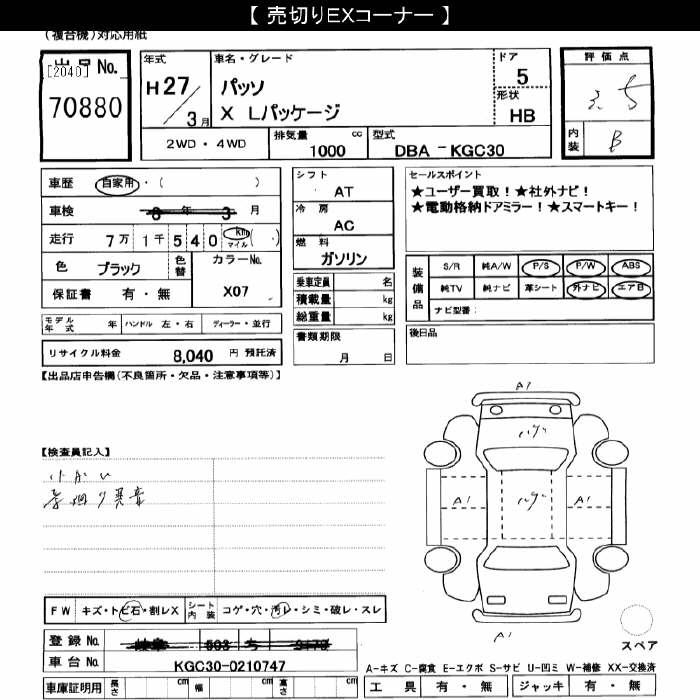 【 売切りEXコーナー 】
(複合機)対応用紙
出品 No.
[2040]
70880
年式
H 27 / 3月
車名・グレード
パッソ
X Lパッケージ
ドア
5
形状
HB
評価点
内装
B
2WD・4WD
排気量 cc
1000
型式
DBA －KGC30
車歴 自家用・( )
車検 年 3 月
走行 7万 1千 5 4 0 km マイル ( )
色 ブラック
色替
カラーNo.
X07
保証書 有・無
シフト
AT
冷房
AC
燃料
ガソリン
乗車定員 名
積載量 kg
総重量 kg
書類期限
月 日
セールスポイント
★ユーザー買取！★社外ナビ！
★電動格納ドアミラー！★スマートキー！
装備品
S/R 純A/W P/S P/W ABS
純TV 純ナビ 革シート 外ナビ エアB
ナビ型番:
後日品
モデル年式 年 ハンドル 左・右 ディーラー・並行
リサイクル料金 8,040 円 預託済
【出品店申告欄(不良箇所・欠品・注意事項等)】
【検査員記入】
A1
A1
A1
A1
FW キズ・トビ石・割レX
シート内装 コゲ・穴・汚レ・シミ・破レ・スレ
登録 No.
車台 No. KGC30-0210747
車庫証明用 長さ cm 幅 cm 高さ cm
スペア
A-キズ C-腐食 E-エクボ S-サビ U-凹ミ W-補修 XX-交換済
工具 有・無 ジャッキ 有・無